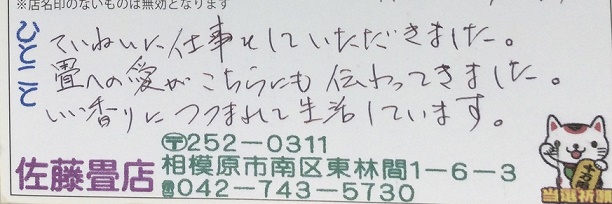 ※店名印のないものは無効となります
ひとこと
ていねいに仕事をしていただきました。
畳への愛がこちらにも伝わってきました。
いい香りにつつまれて生活しています。
〒252-0311
佐藤畳店
相模原市南区東林間1-6-3
☎042-743-5730
千万両
当選祈願